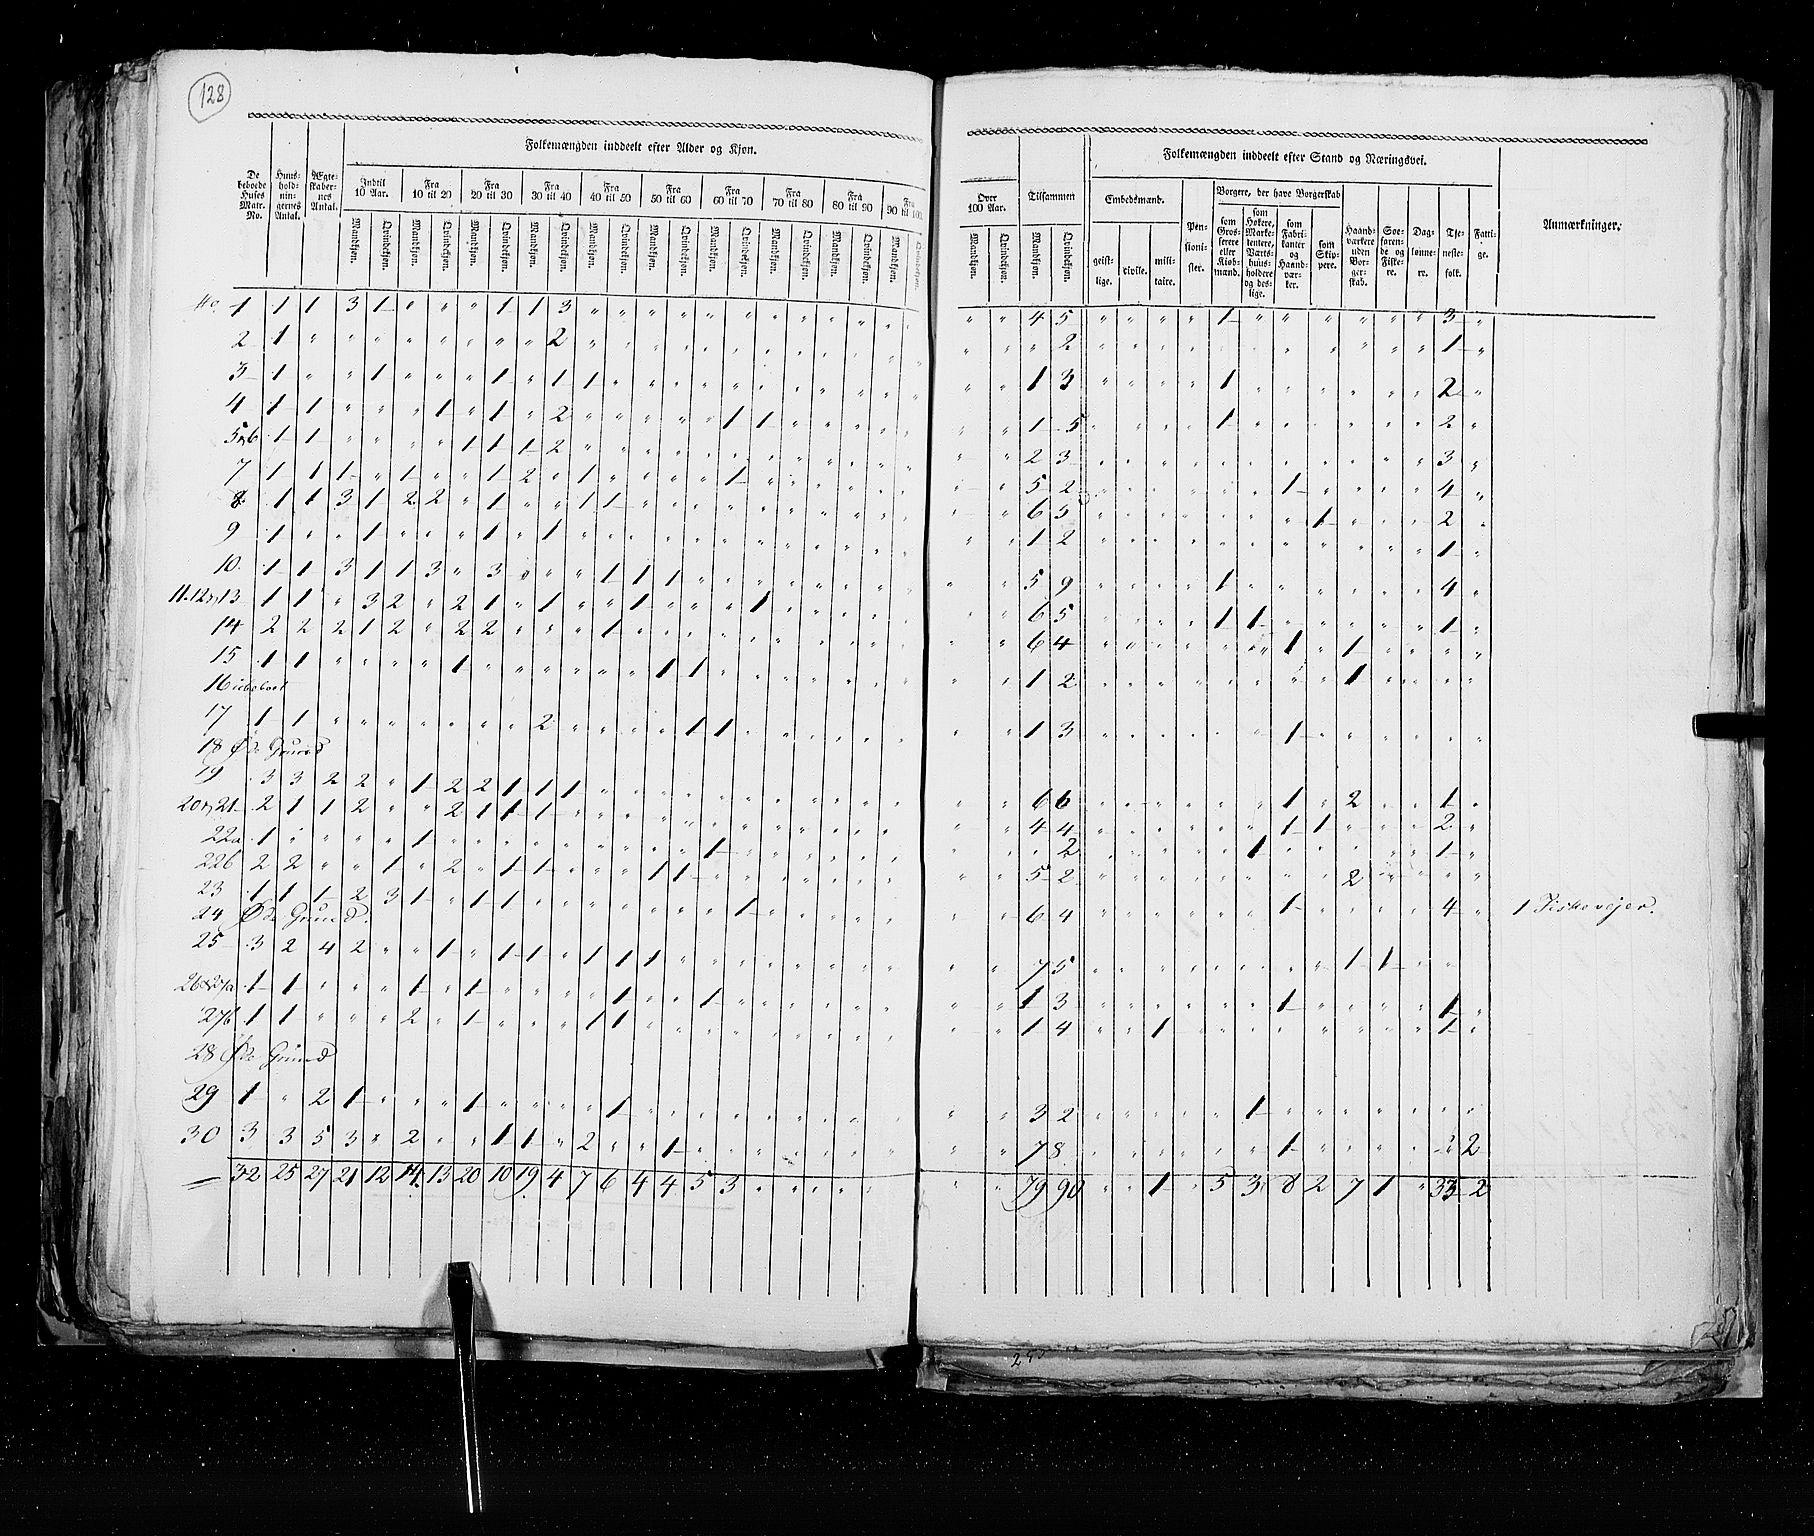 128
Folkemængden inddeelt efter Alder og Kjøn.
De beboede Huses Matr. No.
Huus-hold-nin-gernes Antal.
Ægte-skaber-nes Antal.
Indtil 10 Aar.
Fra 10 til 20
Fra 20 til 30
Fra 30 til 40
Fra 40 til 50
Fra 50 til 60
Fra 60 til 70
Fra 70 til 80
Fra 80 til 90
Fra 90 til 100.
Mandkjøn. Qvindekjøn. Mandkjøn. Qvindekjøn. Mandkjøn. Qvindekjøn. Mandkjøn. Qvindekjøn. Mandkjøn. Qvindekjøn. Mandkjøn. Qvindekjøn. Mandkjøn. Qvindekjøn. Mandkjøn. Qvindekjøn. Mandkjøn. Qvindekjøn. Mandkjøn. Qvindekjøn.
No 1 1 1 3 1 " " " 1 1 3 " " " " " " " " " "
2 1 " " " " " " " " 2 " " " " " " " " " "
3 1 " " 1 " " " 1 " 1 1 " " " " " " " " "
4 1 1 " " " 1 " 1 " 2 " " " " " 1 1 " " "
5 & 6 1 1 " " " " 1 1 1 2 " " " " " " " " " "
7 1 1 1 " 1 " " 1 2 " 1 " " " " 1 " " " "
8 1 1 3 1 2 2 " 1 " " 1 1 " " " " " " " "
9 1 " " 1 " " " 1 " 1 " " " " " " " " " "
10. 1 1 3 1 1 3 " 3 " " " 1 1 1 " " " " " "
11. 12 & 13 1 1 " 3 2 " 2 1 " 1 " " 1 " " " 1 " " "
14 2 2 2 1 2 " 2 2 " " " 1 " " " " " " " "
15 1 1 " " " " 1 " " " " " " 1 1 " " " " "
16 ubeboet
17 1 1 " " " " " " " 2 " " " " 1 1 " " " "
18 Øde Grund
19 3 3 2 2 " 1 2 2 1 1 1 " " " " " " " " "
20 & 21 2 1 1 2 " " 2 1 1 1 " " " " " " " " " "
22a 1 " " " " 1 " " " " " " " " " 1 " " " "
22b 2 2 " " 1 " 2 " 1 1 " " " 1 1 " " " " "
23 1 1 1 2 3 1 " 1 1 " " " " " " " 1 " " "
24 Øde Grund.
25 3 2 4 2 " " 1 " 1 1 " 1 1 1 " " " " " "
26 & 27a 1 1 " " " 1 " 1 " " " " 1 " " 1 " " " "
27b 1 1 " " " 2 " 1 " " " 1 1 " " " " " " "
28 Øde Grund
29 1 " 2 1 " " " 1 " " " " 1 " " " " " " "
30 3 3 5 3 " 2 " " 1 1 " 2 " " 1 " " " " "
32 25 27 21 12 14 13 20 10 19 4 7 6 4 4 5 3 " " " "
Over 100 Aar.
Tilsammen
Folkemængden inddeelt efter Stand og Næringsvei.
Embedsmænd.
geist-lige.
civile.
mili-taire.
Pen-sioni-ster.
Borgere, der have Borgerskab
som Gros-serere eller Kiøb-mænd.
som Høkere, Marke-tentere, Værts-huus-holdere og des-lige.
som Fabri-kanter og Haand-vær-ker.
som Skip-pere.
Haand-værkere uden Bor-ger-skab.
Søe-faren-de og Fiske-re.
Dag-lønne-re.
Tje-neste-folk.
Fatti-ge.
Anmærkninger.
Mandkjøn. Qvindekjøn. Mandkjøn. Qvindekjøn.
" " 4 5 " " " " 1 " " " " " " 3 "
" " " 2 " " " " " " " " " " " 1 "
" " 1 3 " " " " 1 " " " " " " 2 "
" " 1 5 " " " " 1 " " " " " " 2 "
" " 2 3 " " " " " " " " " " " 3 "
" " 5 2 " " " " " " 1 " " " " 4 "
" " 6 5 " " " " " " " 1 " " " 2 "
" " 1 2 " " " " " " " " " " " 1 "
" " 5 9 " " " " 1 " " " " " " 4 "
" " 6 5 " " " " 1 1 " " " " " 1 "
" " 6 4 " " " " " " 1 " 1 " " " "
" " 1 2 " " " " " " " " 1 " " " "
" " 1 3 " " " " " " 1 " " " " " "
" " 6 6 " " " " " " 1 " 2 " " 1 "
" " 4 4 " " " " " " 1 1 " " " 2 "
" " " 2 " " " " " 1 " " " " " 1 "
" " 5 2 " " " " " " " " 2 " " " "
" " 6 4 " " " " " " 1 " " " " 4 "
" " 7 5 " " " " " " " " 1 1 " " "
" " 1 3 " " " " " " 1 " " " " 1 "
" " 1 4 " " 1 " " " " " " " " 1 "
" " 3 2 " " " " " 1 " " " " " " "
" " 7 8 " " " " " " 1 " " " " 2 2
" " 79 90 " " 1 " 5 3 8 2 7 1 " 33 2